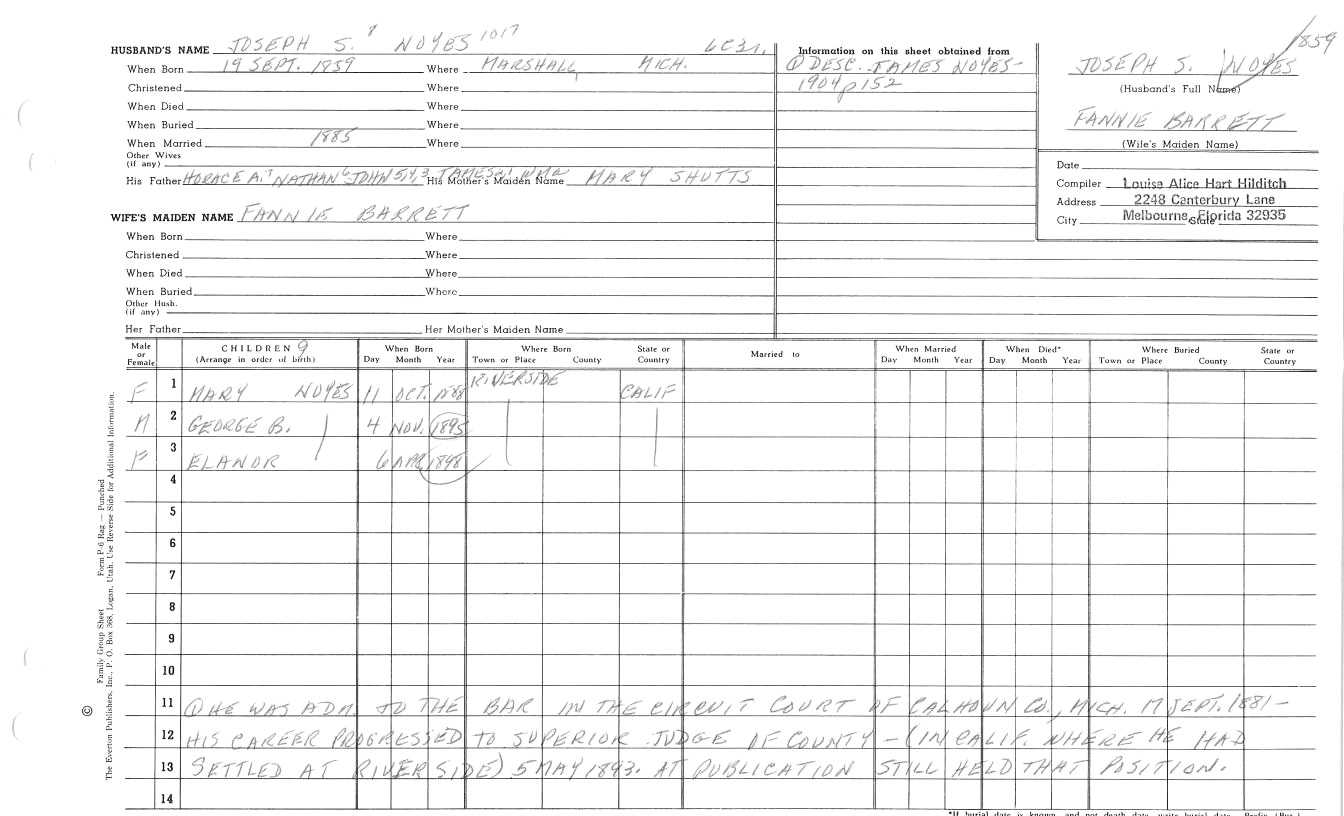 1859
HUSBAND'S NAME JOSEPH S. 8 NOYES 1017
When Born 19 SEPT. 1859 Where MARSHALL, MICH.
Christened Where
When Died Where
When Buried Where
When Married 1885 Where
Other Wives
(if any)
His Father HORACE A.7 NATHAN6 JOHN 5,4,3 JAMES2, WM His Mother's Maiden Name MARY SHUTTS
WIFE'S MAIDEN NAME FANNIE BARRETT
When Born Where
Christened Where
When Died Where
When Buried Where
Other Hush.
(if any)
Her Father Her Mother's Maiden Name
Information on this sheet obtained from
① DESC. JAMES NOYES-
1904 p152
JOSEPH S. NOYES
(Husband's Full Name)
FANNIE BARRETT
(Wife's Maiden Name)
Date
Compiler Louise Alice Hart Hilditch
Address 2248 Canterbury Lane
City Melbourne, Florida 32935 State
Male or Female CHILDREN 9 (Arrange in order of birth) When Born Day Month Year Where Born Town or Place County State or Country Married to When Married Day Month Year When Died* Day Month Year Where Buried Town or Place County State or Country
F 1 MARY NOYES 11 OCT. 1888 RIVERSIDE CALIF
M 2 GEORGE B. 4 NOV. 1895
F 3 ELANOR 6 APR 1898
4
5
6
7
8
9
10
11 ① HE WAS ADM. TO THE BAR IN THE CIRCUIT COURT OF CALHOUN CO., MICH. 17 SEPT. 1881-
12 HIS CAREER PROGRESSED TO SUPERIOR JUDGE OF COUNTY - (IN CALIF. WHERE HE HAD
13 SETTLED AT RIVERSIDE) 5 MAY 1893. AT PUBLICATION STILL HELD THAT POSITION.
14
© Family Group Sheet Form P-6 Rag — Punched
The Everton Publishers, Inc., P. O. Box 368, Logan, Utah. Use Reverse Side for Additional Information.
*If burial date is known and not death date, write burial date. Prefix (Bur.)